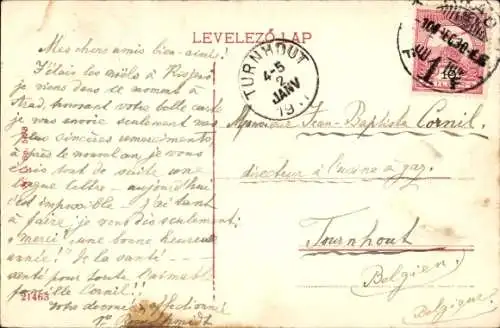 LEVELEZŐ LAP
TURNHOUT
4-5
2
JANV
19
Mes chers amis bien-aimés!
J'étais les
je viens dans ce moment à
Arad, trouvant votre belle carte
je vous envoie seulement mes
plus sincères remerciments
après le nouvel an, je vous
écris tout de suite une
longue lettre – aujourd'hui
c'est impossible – j'ai tant
à faire, je vous dis seulement:
"Merci, une bonne heureuse
année!" de la santé –
santé pour toute l'aimable
famille Cornil!!
Votre dévouée, affectionnée
Monsieur Jean-Baptiste Cornil
directeur à l'usine à gaz.
Tournhout
Belgien.
Belgique
21463